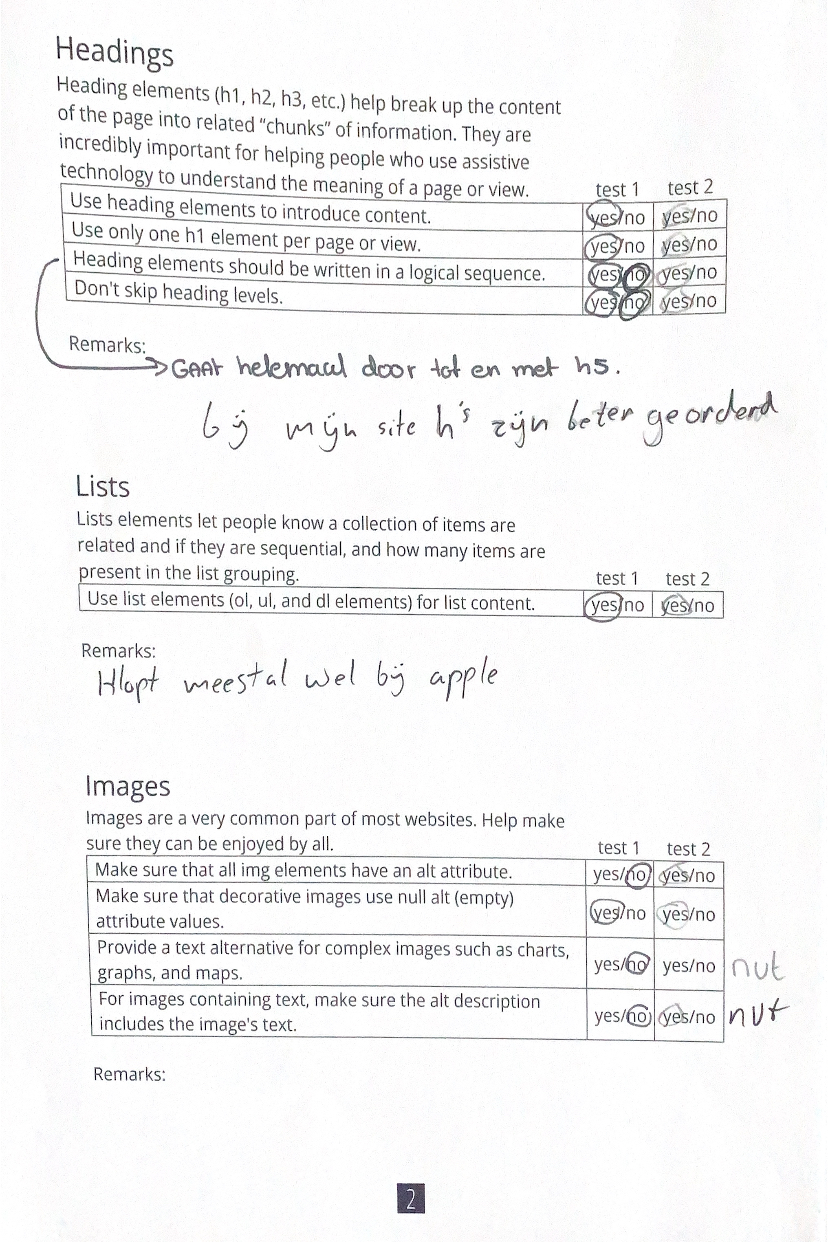 Headings
Heading elements (h1, h2, h3, etc.) help break up the content
of the page into related "chunks" of information. They are
incredibly important for helping people who use assistive
technology to understand the meaning of a page or view. test 1 test 2
Use heading elements to introduce content. yes/no yes/no
Use only one h1 element per page or view. yes/no yes/no
Heading elements should be written in a logical sequence. yes/no yes/no
Don't skip heading levels. yes/no yes/no
Remarks:
GAAt helemaal door tot en met h5.
bij mijn site h's zijn beter geordend
Lists
Lists elements let people know a collection of items are
related and if they are sequential, and how many items are
present in the list grouping. test 1 test 2
Use list elements (ol, ul, and dl elements) for list content. yes/no yes/no
Remarks:
Klopt meestal wel bij apple
Images
Images are a very common part of most websites. Help make
sure they can be enjoyed by all. test 1 test 2
Make sure that all img elements have an alt attribute. yes/no yes/no
Make sure that decorative images use null alt (empty)
attribute values. yes/no yes/no
Provide a text alternative for complex images such as charts,
graphs, and maps. yes/no yes/no nut
For images containing text, make sure the alt description
includes the image's text. yes/no yes/no nut
Remarks:
2